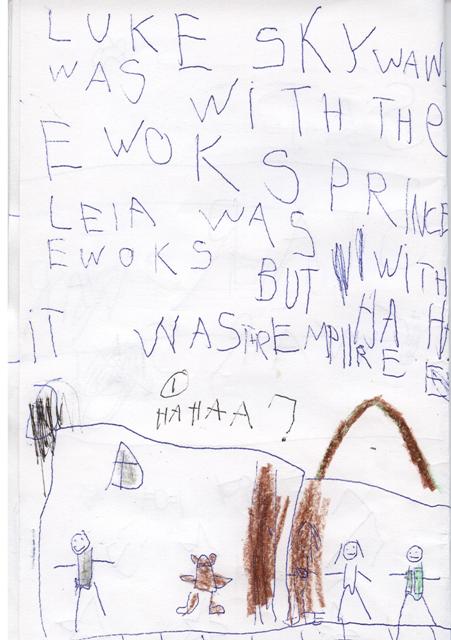 LUKE SKYWAW
WAS WITH THE
EWOKS PRINCE
LEIA WAS WITH
EWOKS BUT HAH
IT WAS THE EMPIIRE
1
HAHAA